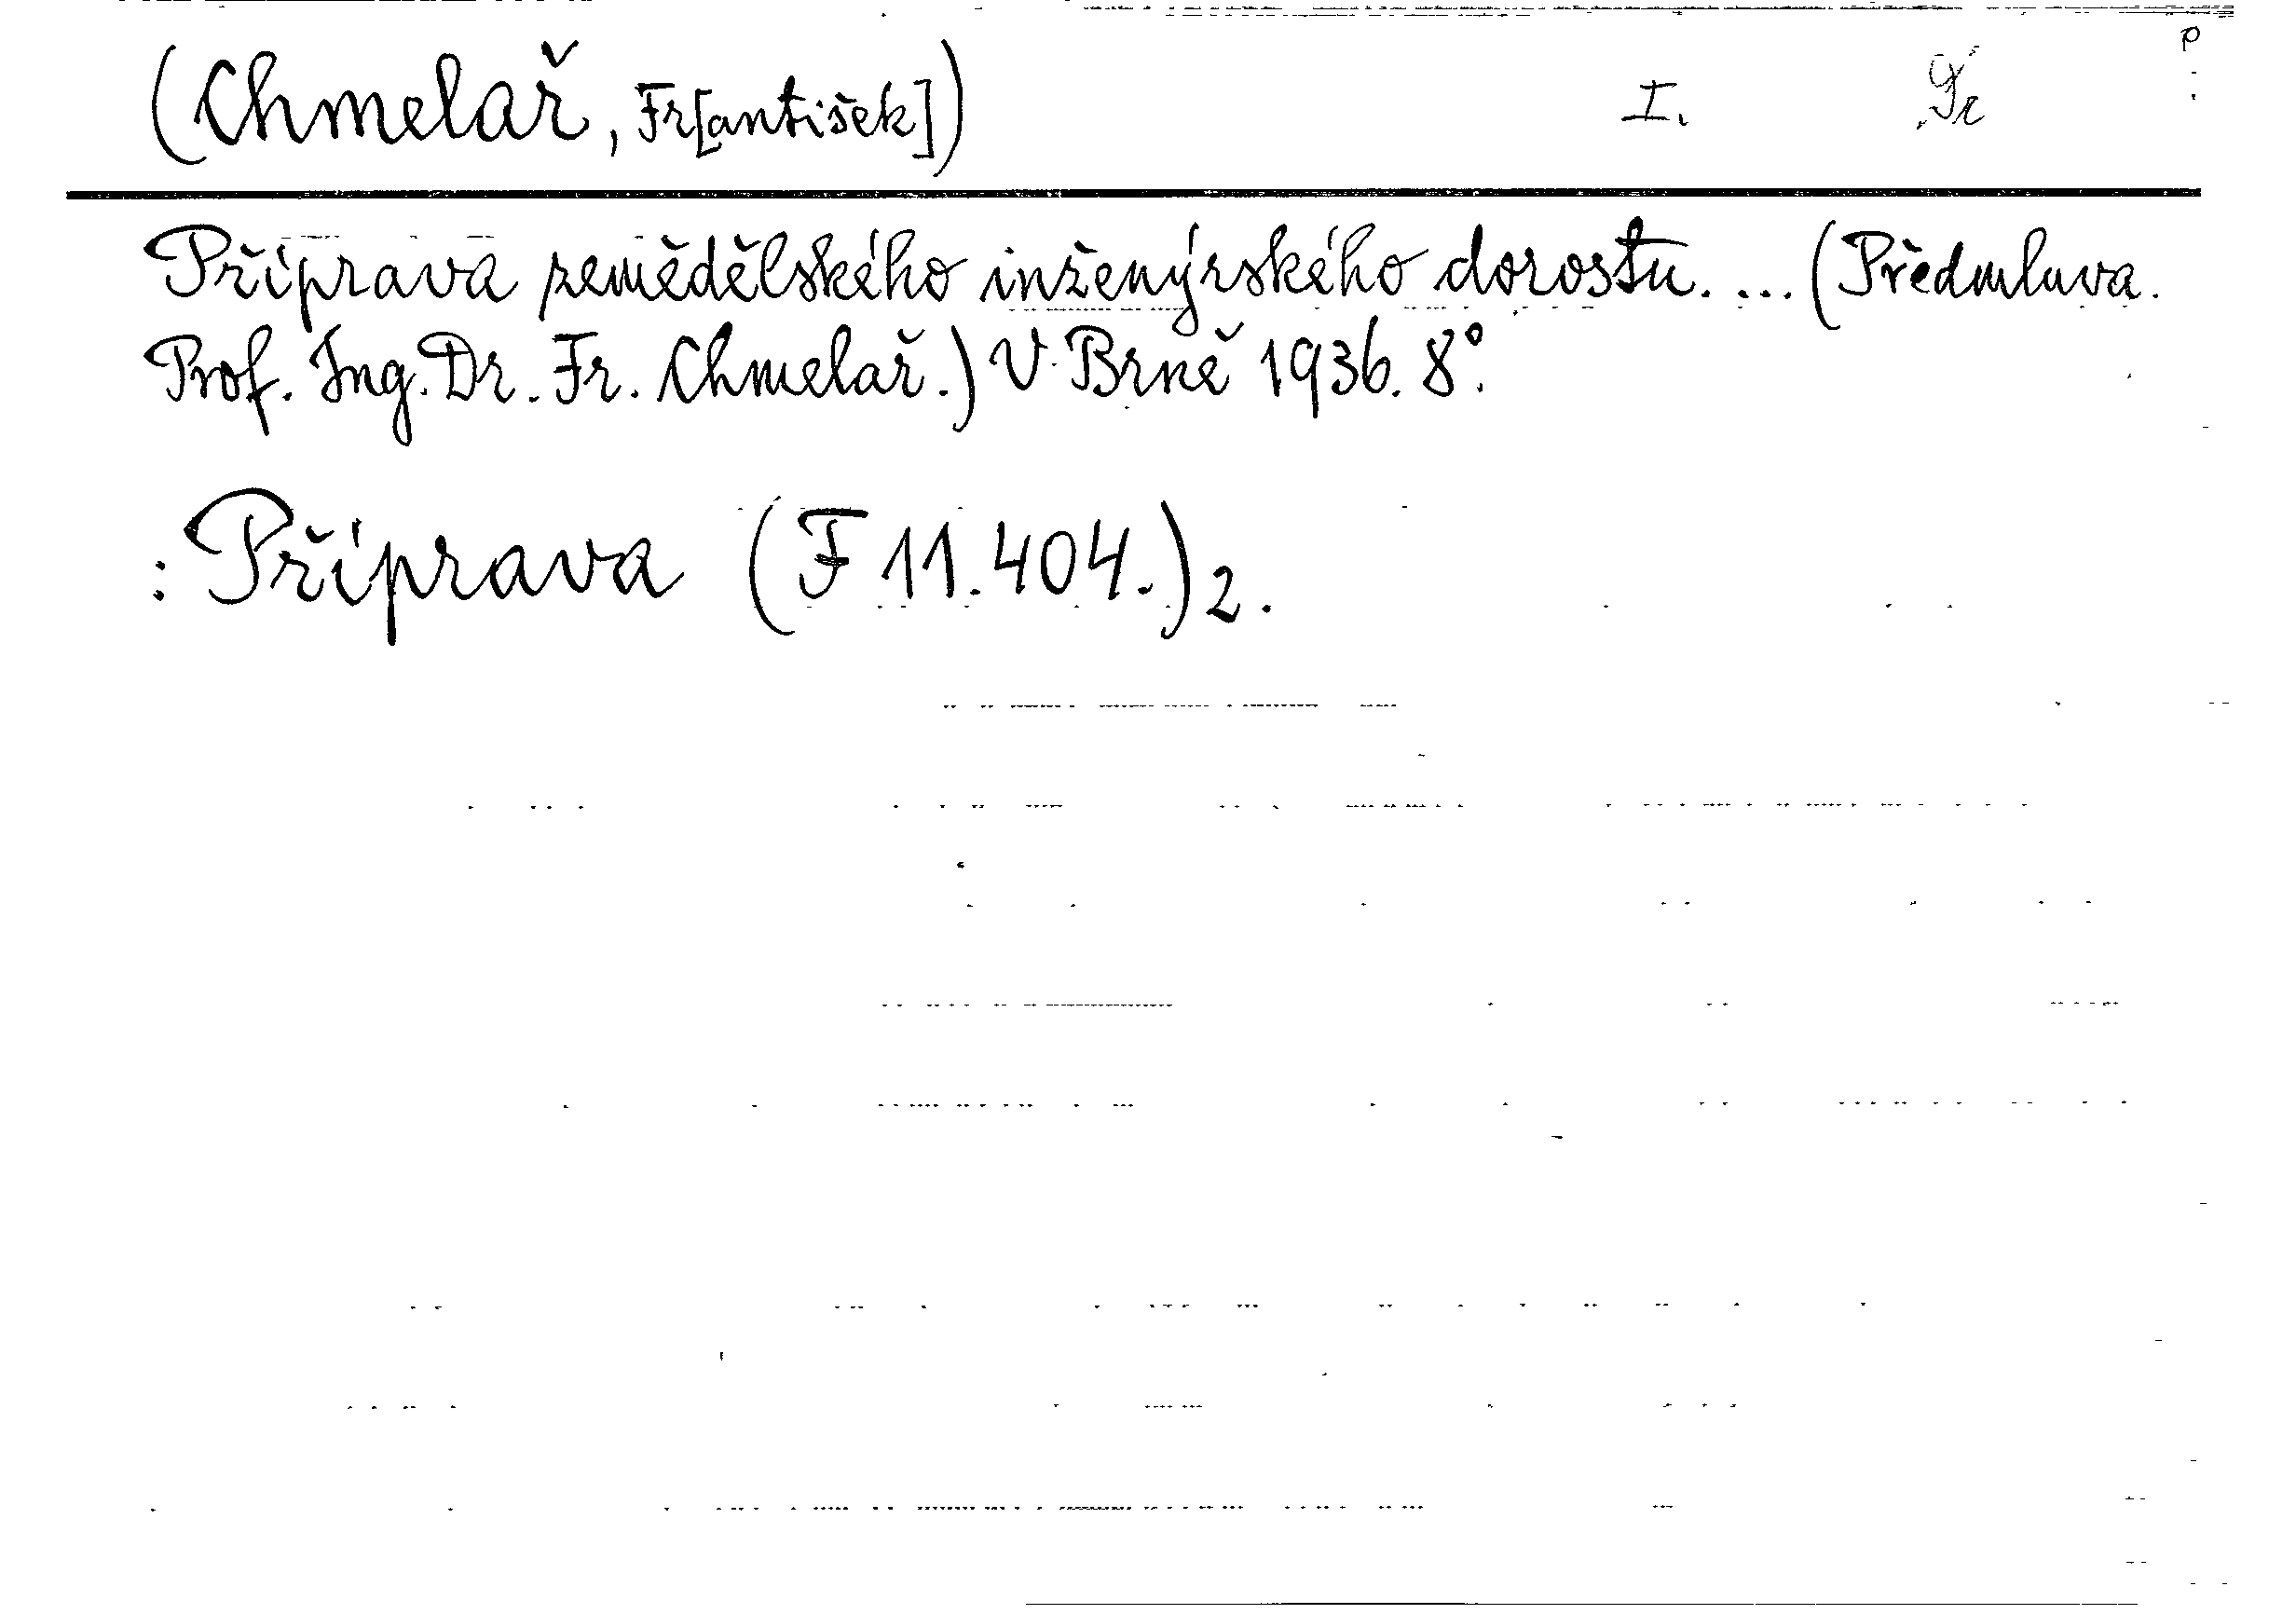 (Chmelař, Fr[antišek]) I.
Příprava zemědělského inženýrského dorostu. ... (Předmluva.
Prof. Ing. Dr. Fr. Chmelař.) V Brně 1936. 8°.
: Příprava (F 11.404.)2.